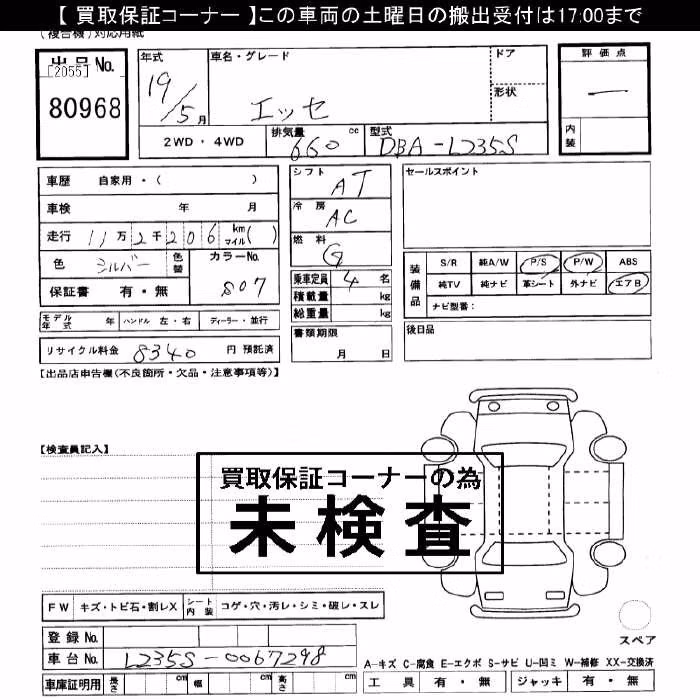 【 買取保証コーナー 】この車両の土曜日の搬出受付は17:00まで
(複合機)対応用紙
出品No.
[2055]
80968
年式
19/5月
車名・グレード
エッセ
ドア
形状
評価点
—
内装
2WD・4WD
排気量 660 cc
型式 DBA-L235S
車歴 自家用・( )
車検 年 月
走行 11万2千206 km マイル( )
色 シルバー 色替 カラーNo. S07
保証書 有・無
シフト AT
冷房 AC
燃料 G
乗車定員 4 名
積載量 kg
総重量 kg
書類期限 月 日
セールスポイント
装備品
S/R 純A/W P/S P/W ABS
純TV 純ナビ 革シート 外ナビ エアB
ナビ型番:
後日品
モデル年式 年 ハンドル 左・右 ディーラー・並行
リサイクル料金 8340 円 預託済
【出品店申告欄(不良箇所・欠品・注意事項等)】
【検査員記入】
買取保証コーナーの為
未検査
FW キズ・トビ石・割レX シート内装 コゲ・穴・汚レ・シミ・破レ・スレ
登録No.
車台No. L235S-0067298
車庫証明用 長さ cm 幅 cm 高さ cm
スペア
A-キズ C-腐食 E-エクボ S-サビ U-凹ミ W-補修 XX-交換済
工具 有・無 ジャッキ 有・無